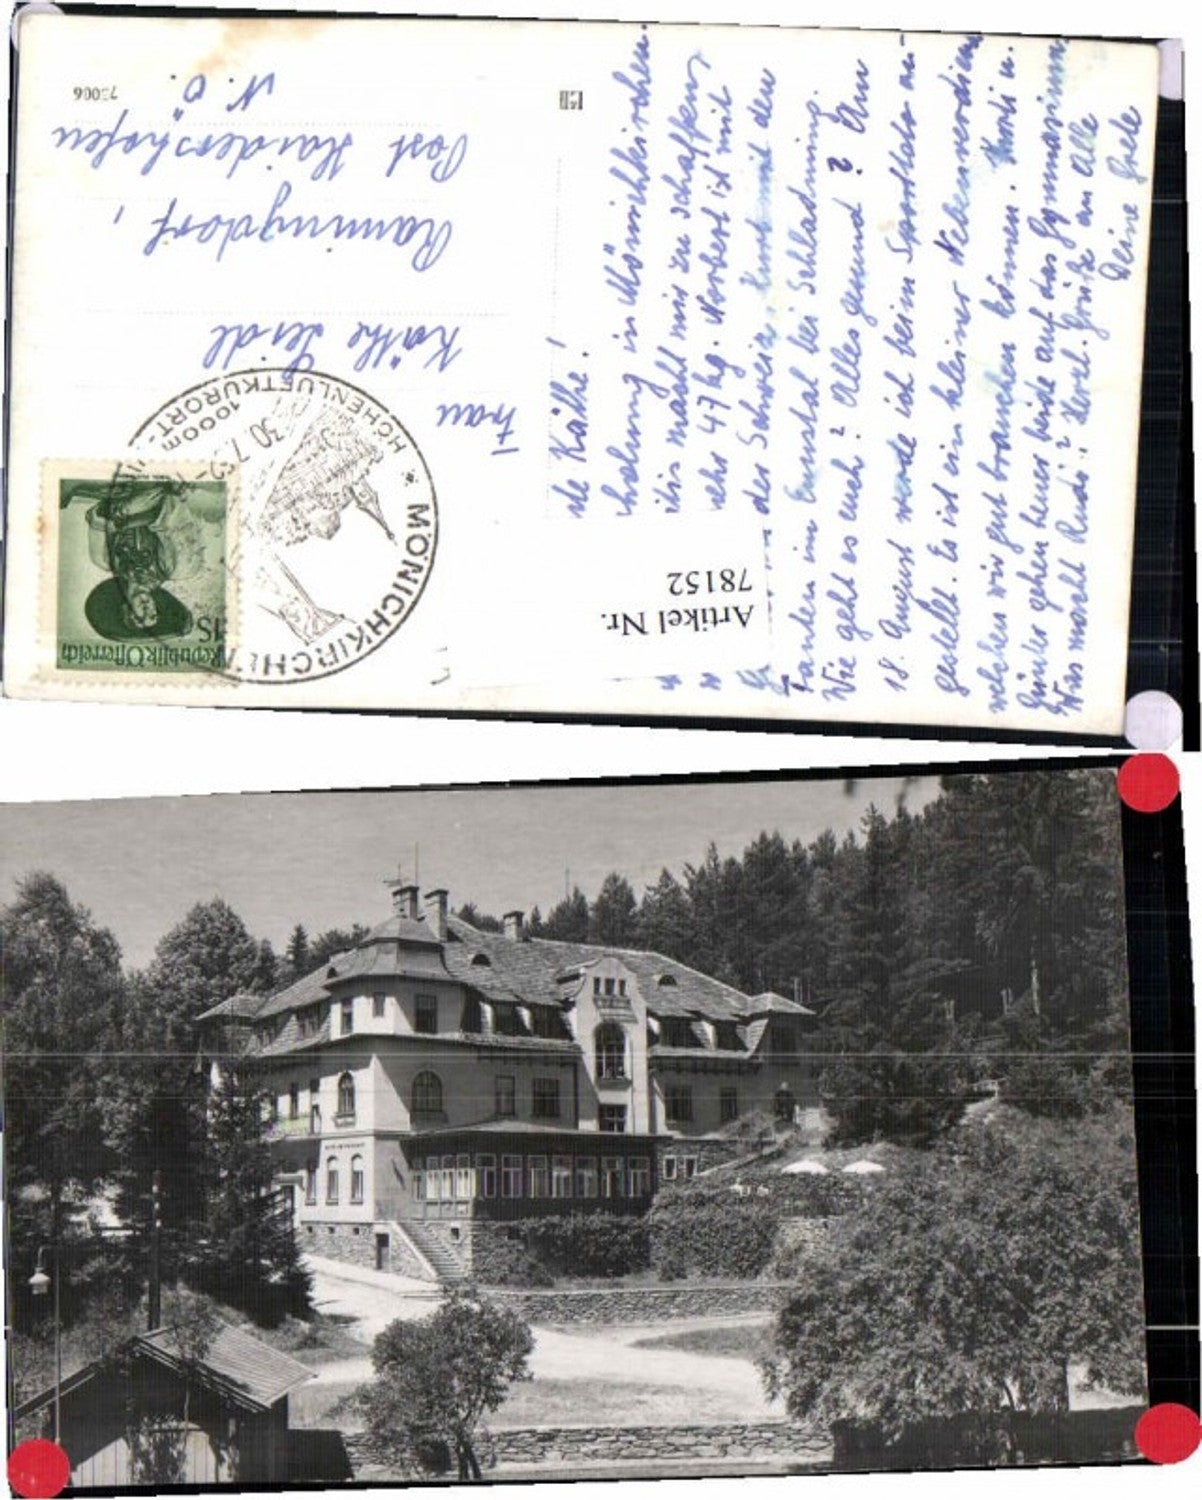 Frau
Käthe Seidl
Ramingdorf,
Post Haidershofen
N. Ö.
Republik Österreich
1S
MÖNICHKIRCHEN
HÖHENLUFTKURORT
1000m
30.7.
Artikel Nr.
78152
Käthe!
in Mönichkirchen.
macht mir zu schaffen,
47 kg. Norbert ist mit
der Schweiz, Kurt mit den
Tanten im Ennstal bei Schladming.
Wie geht es euch? Alles gesund? Am
18. August werde ich beim Sportstadt an-
gestellt. Es ist ein kleiner Nebenverdienst
welchen wir gut brauchen können. Kurti u.
Günter gehen heuer beide auf das Gymnasium.
Was macht Rudi? Herzl. Grüße an Alle
Deine Grete